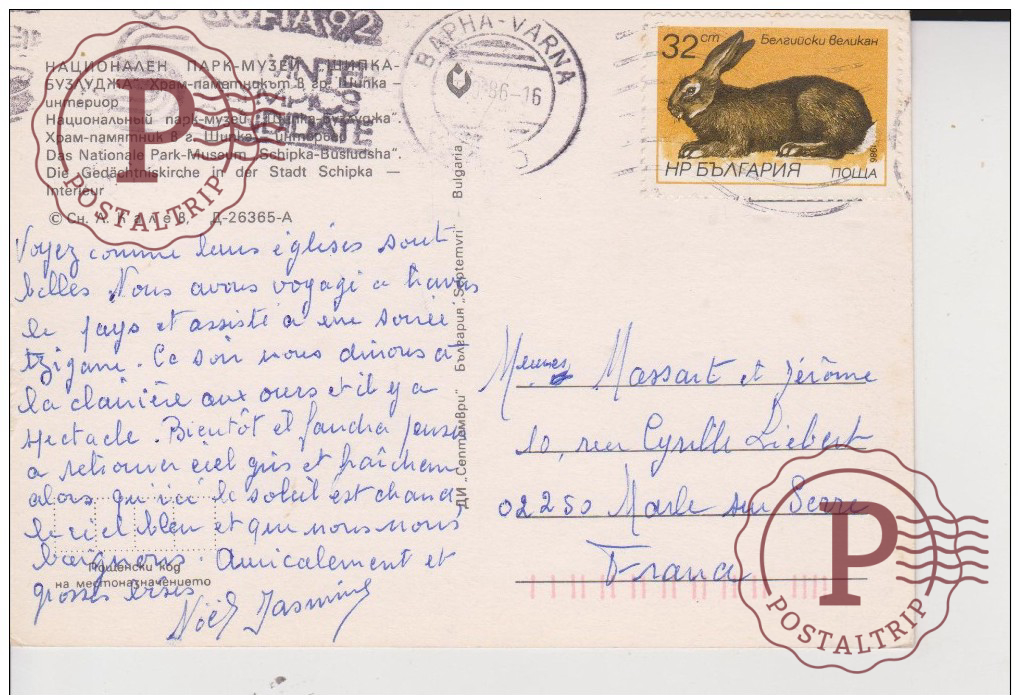 SOFIA 92
ВАРНА-VARNA
86-16
32 ст
Белгийски великан
1986
НР БЪЛГАРИЯ
ПОЩА
НАЦИОНАЛЕН ПАРК-МУЗЕЙ „ШИПКА-
БУЗЛУДЖА“ Храм-паметникът в гр. Шипка –
интериор
Национальный парк-музей „Шипка-Бузлуджа“.
Храм-памятник в г. Шипка – интерьер
Das Nationale Park-Museum „Schipka-Busludsha“.
Die Gedächtniskirche in der Stadt Schipka —
Interieur
© Сн. А. Калев, Д-26365-А
P
POSTALTRIP
Voyez comme leurs églises sont
belles Nous avons voyagé a travers
le pays et assisté a une soirée
tzigane. Ce soir nous dinons à
la clairière aux ours et il y a
spectacle. Bientôt il faudra penser
a retrouver ciel gris et fraîcheur
alors qu'ici le soleil est chaud
le ciel bleu et que nous nous
baignons. Amicalement et
grosses bises
Noël Jasmine
Пощенски код
на местоназначението
ДИ „Септември“ България „Septemvri“ Bulgaria
Massart et Jérôme
10, rue Cyrille Liebert
02250 Marle sur Serre
France
P
POSTALTRIP